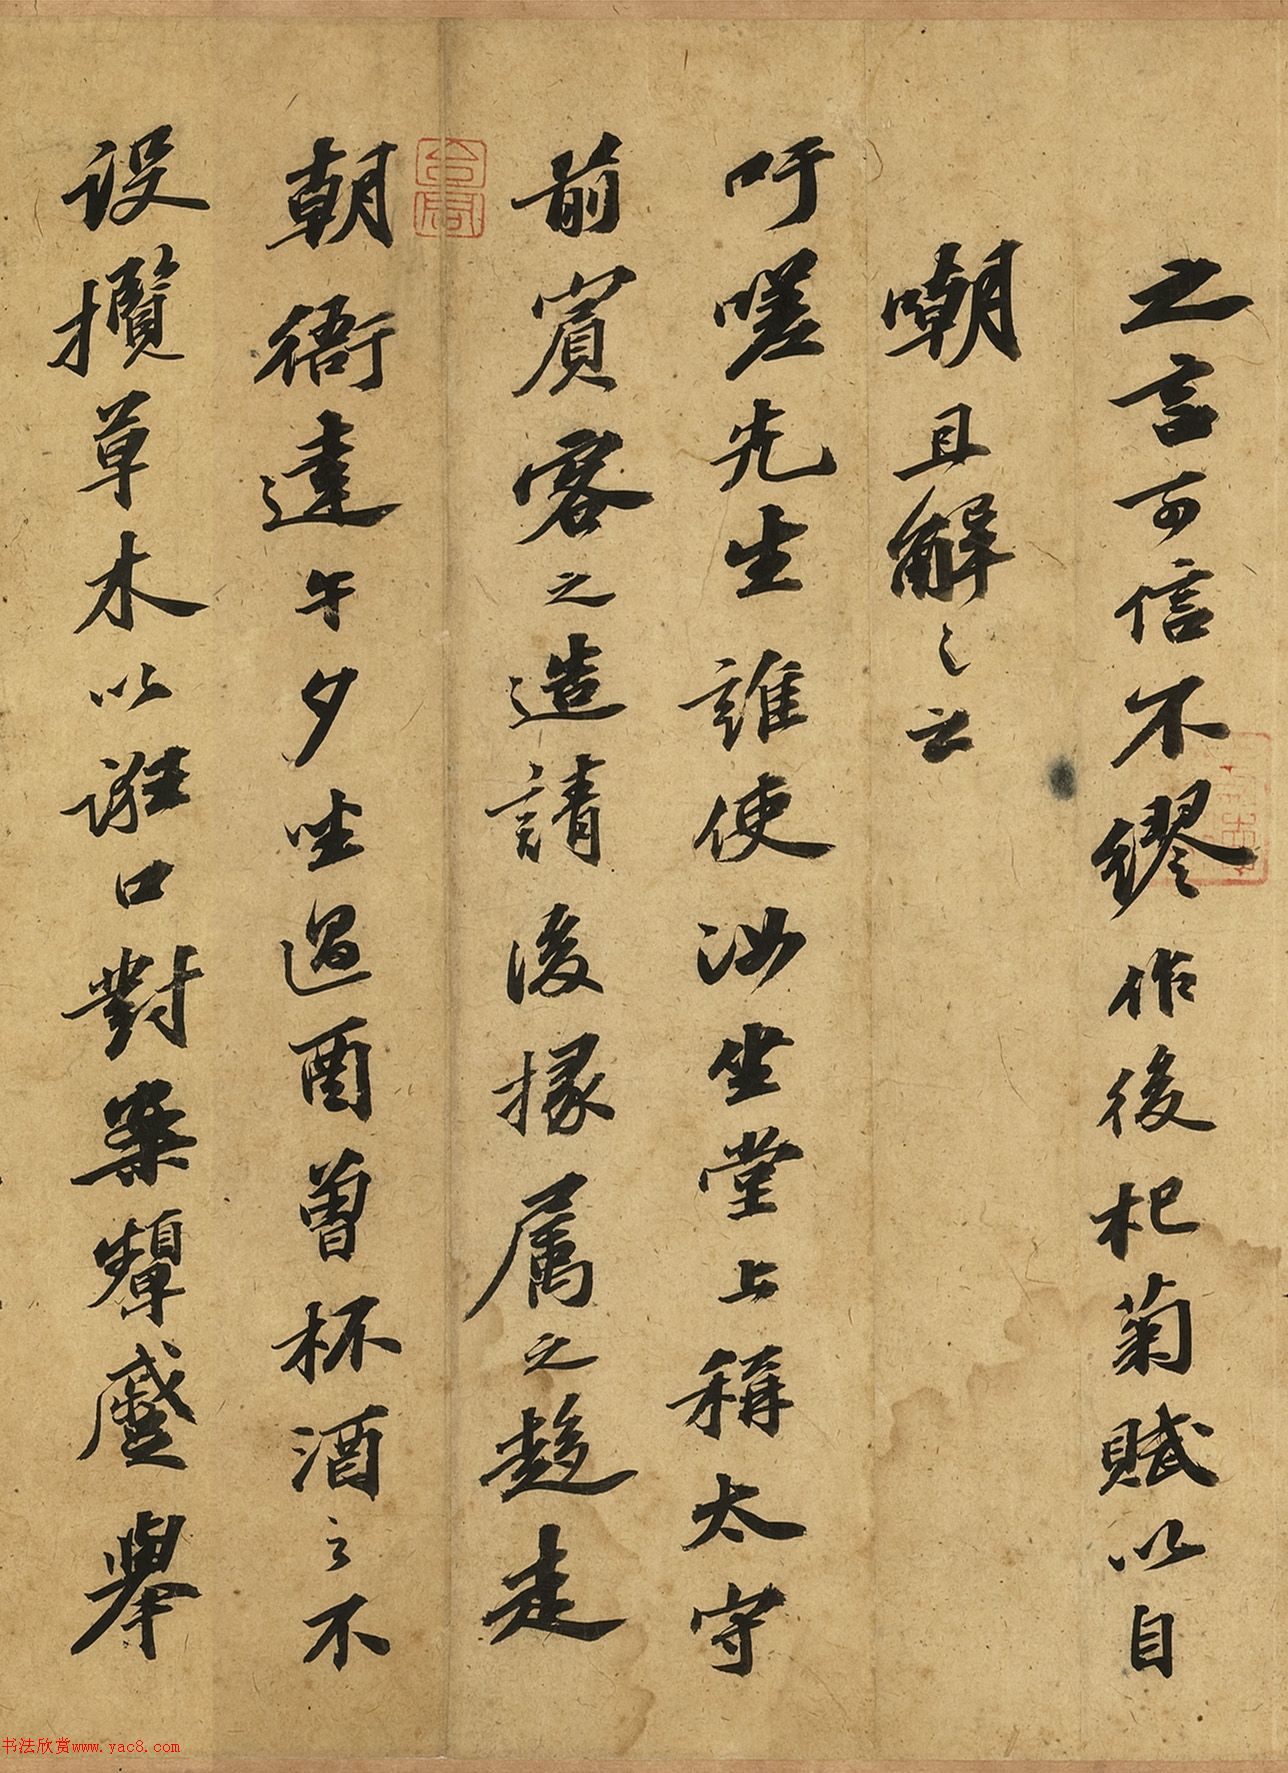 之言可信不繆作後杞菊賦以自
嘲且解之云
吁嗟先生誰使汝坐堂上稱太守
前賓客之造請後掾属之趍走
朝衙達午夕坐過酉曾杯酒之不
设攬草木以誑口對案顰蹙舉
书法欣赏www.yac8.com